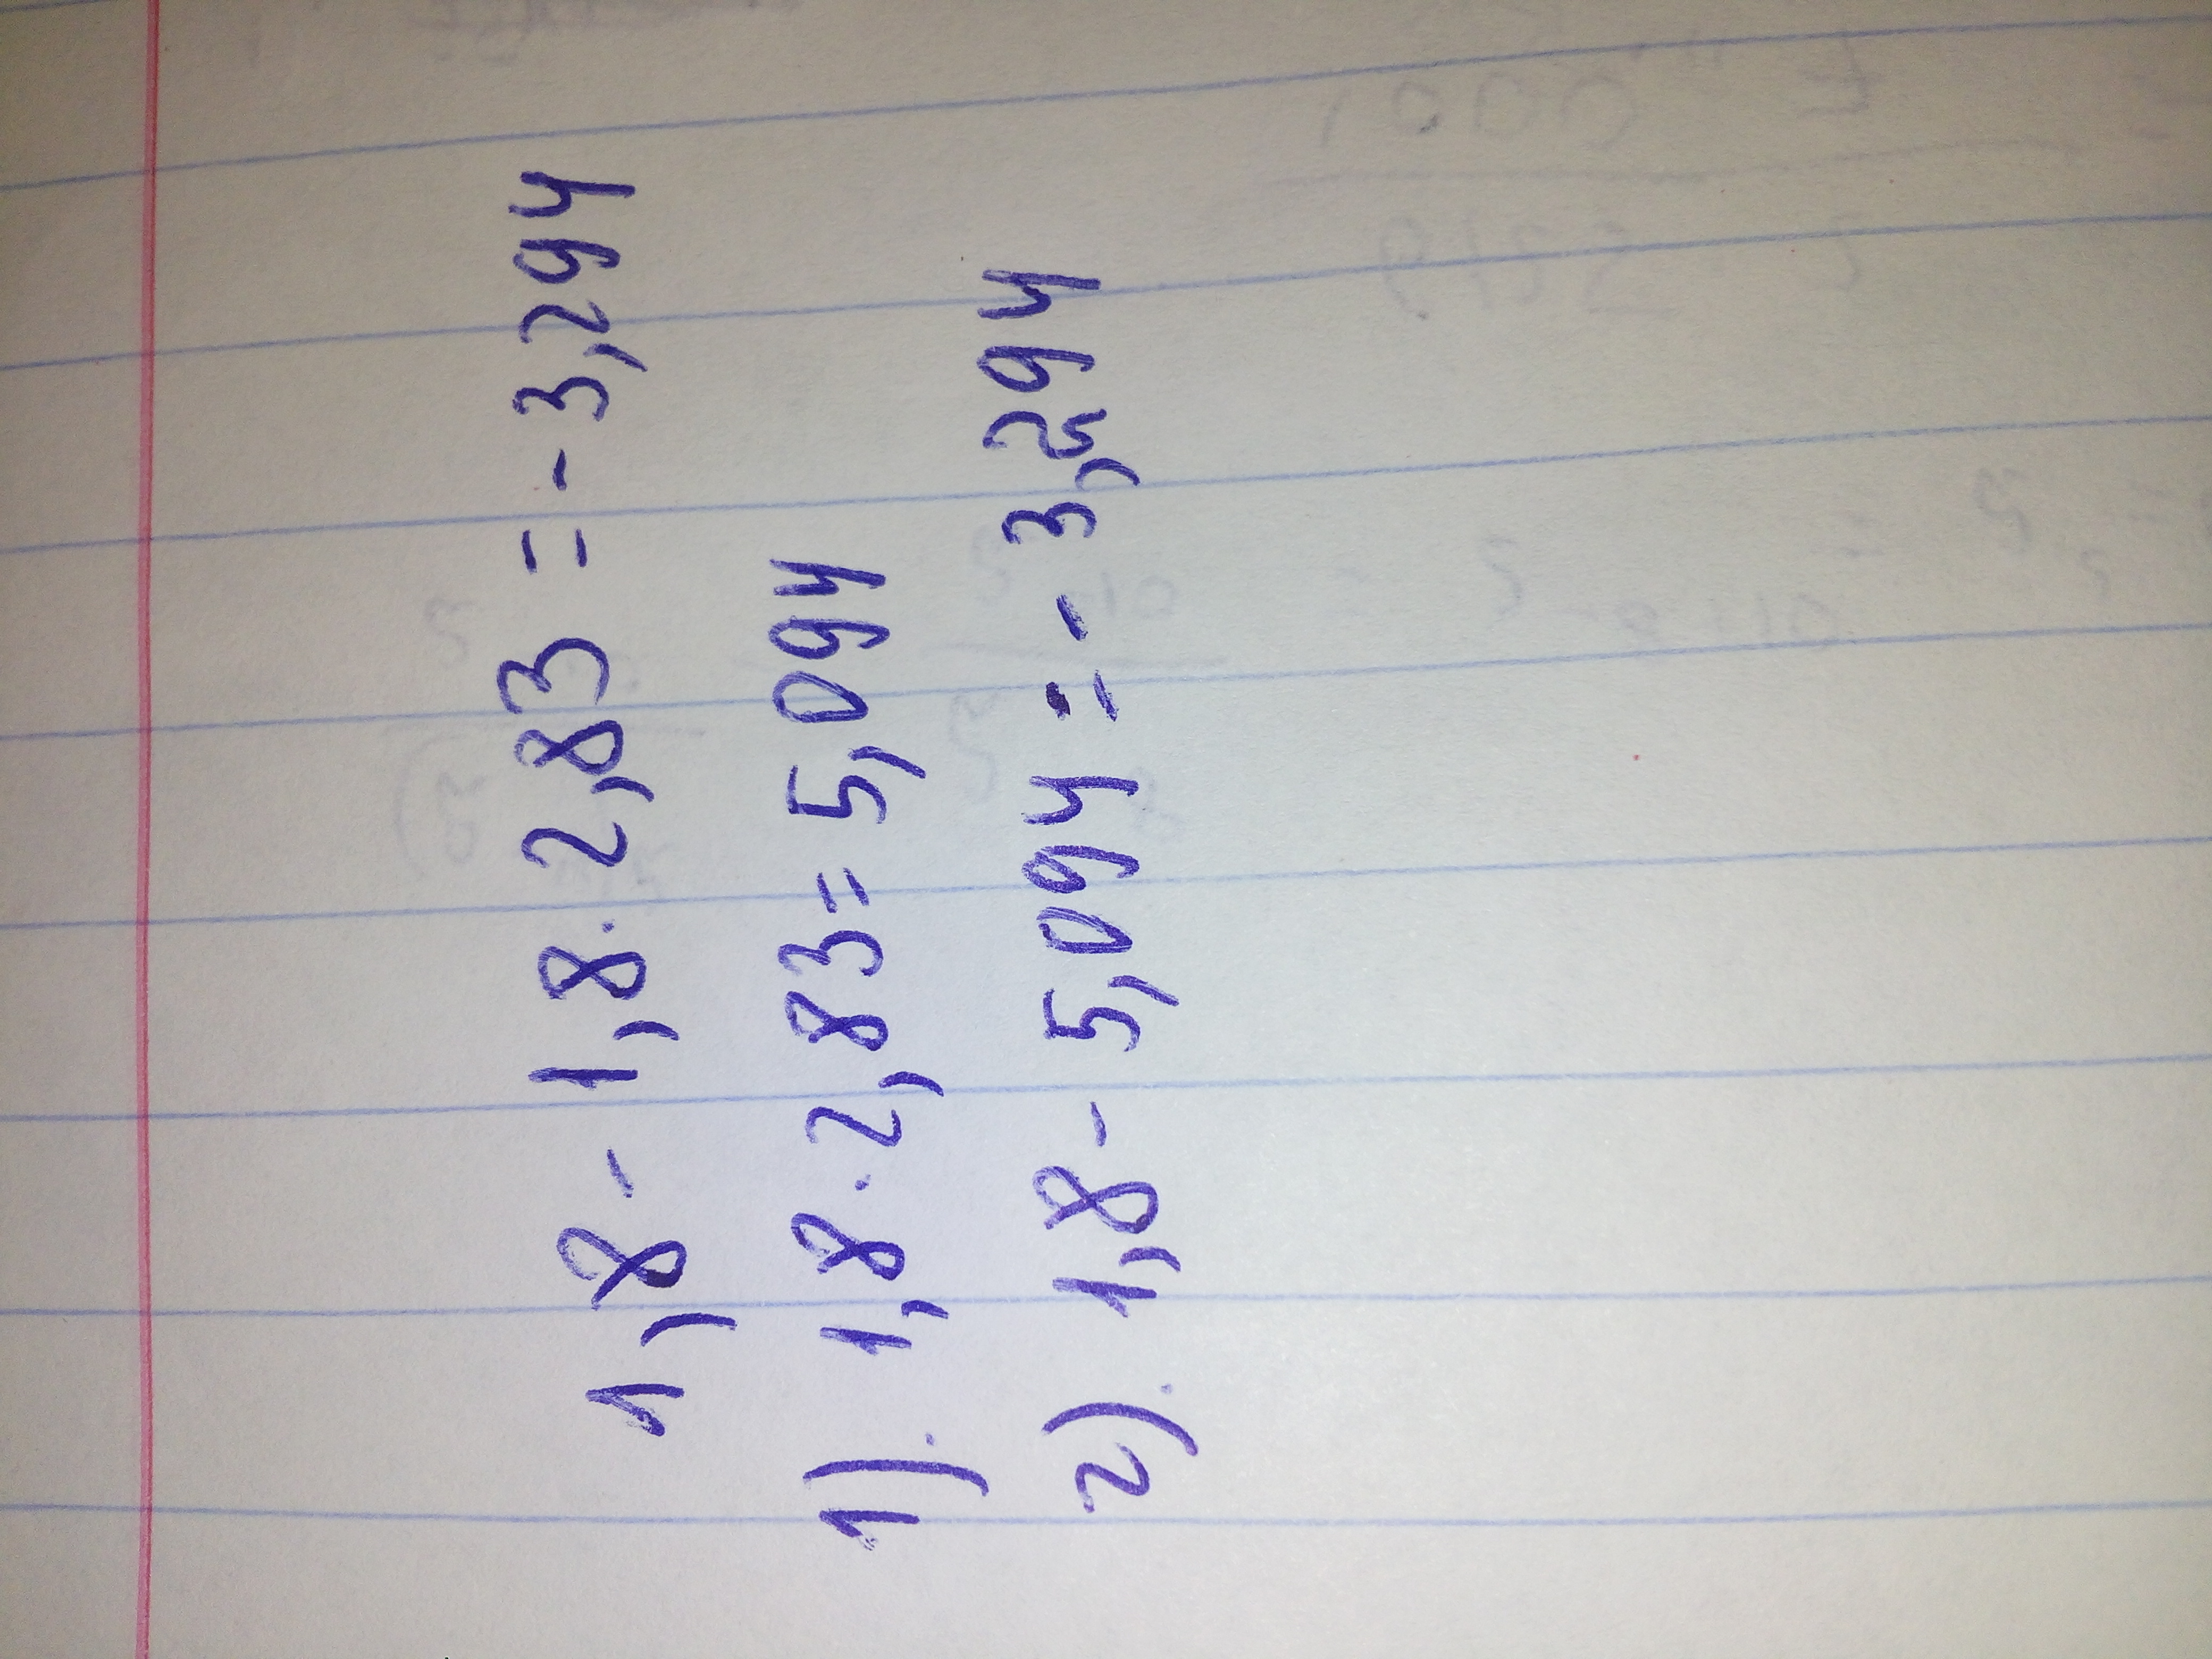 1,8 - 1,8 · 2,83 = - 3,294
1). 1,8 · 2,83 = 5,094
2). 1,8 - 5,094 = - 3,294